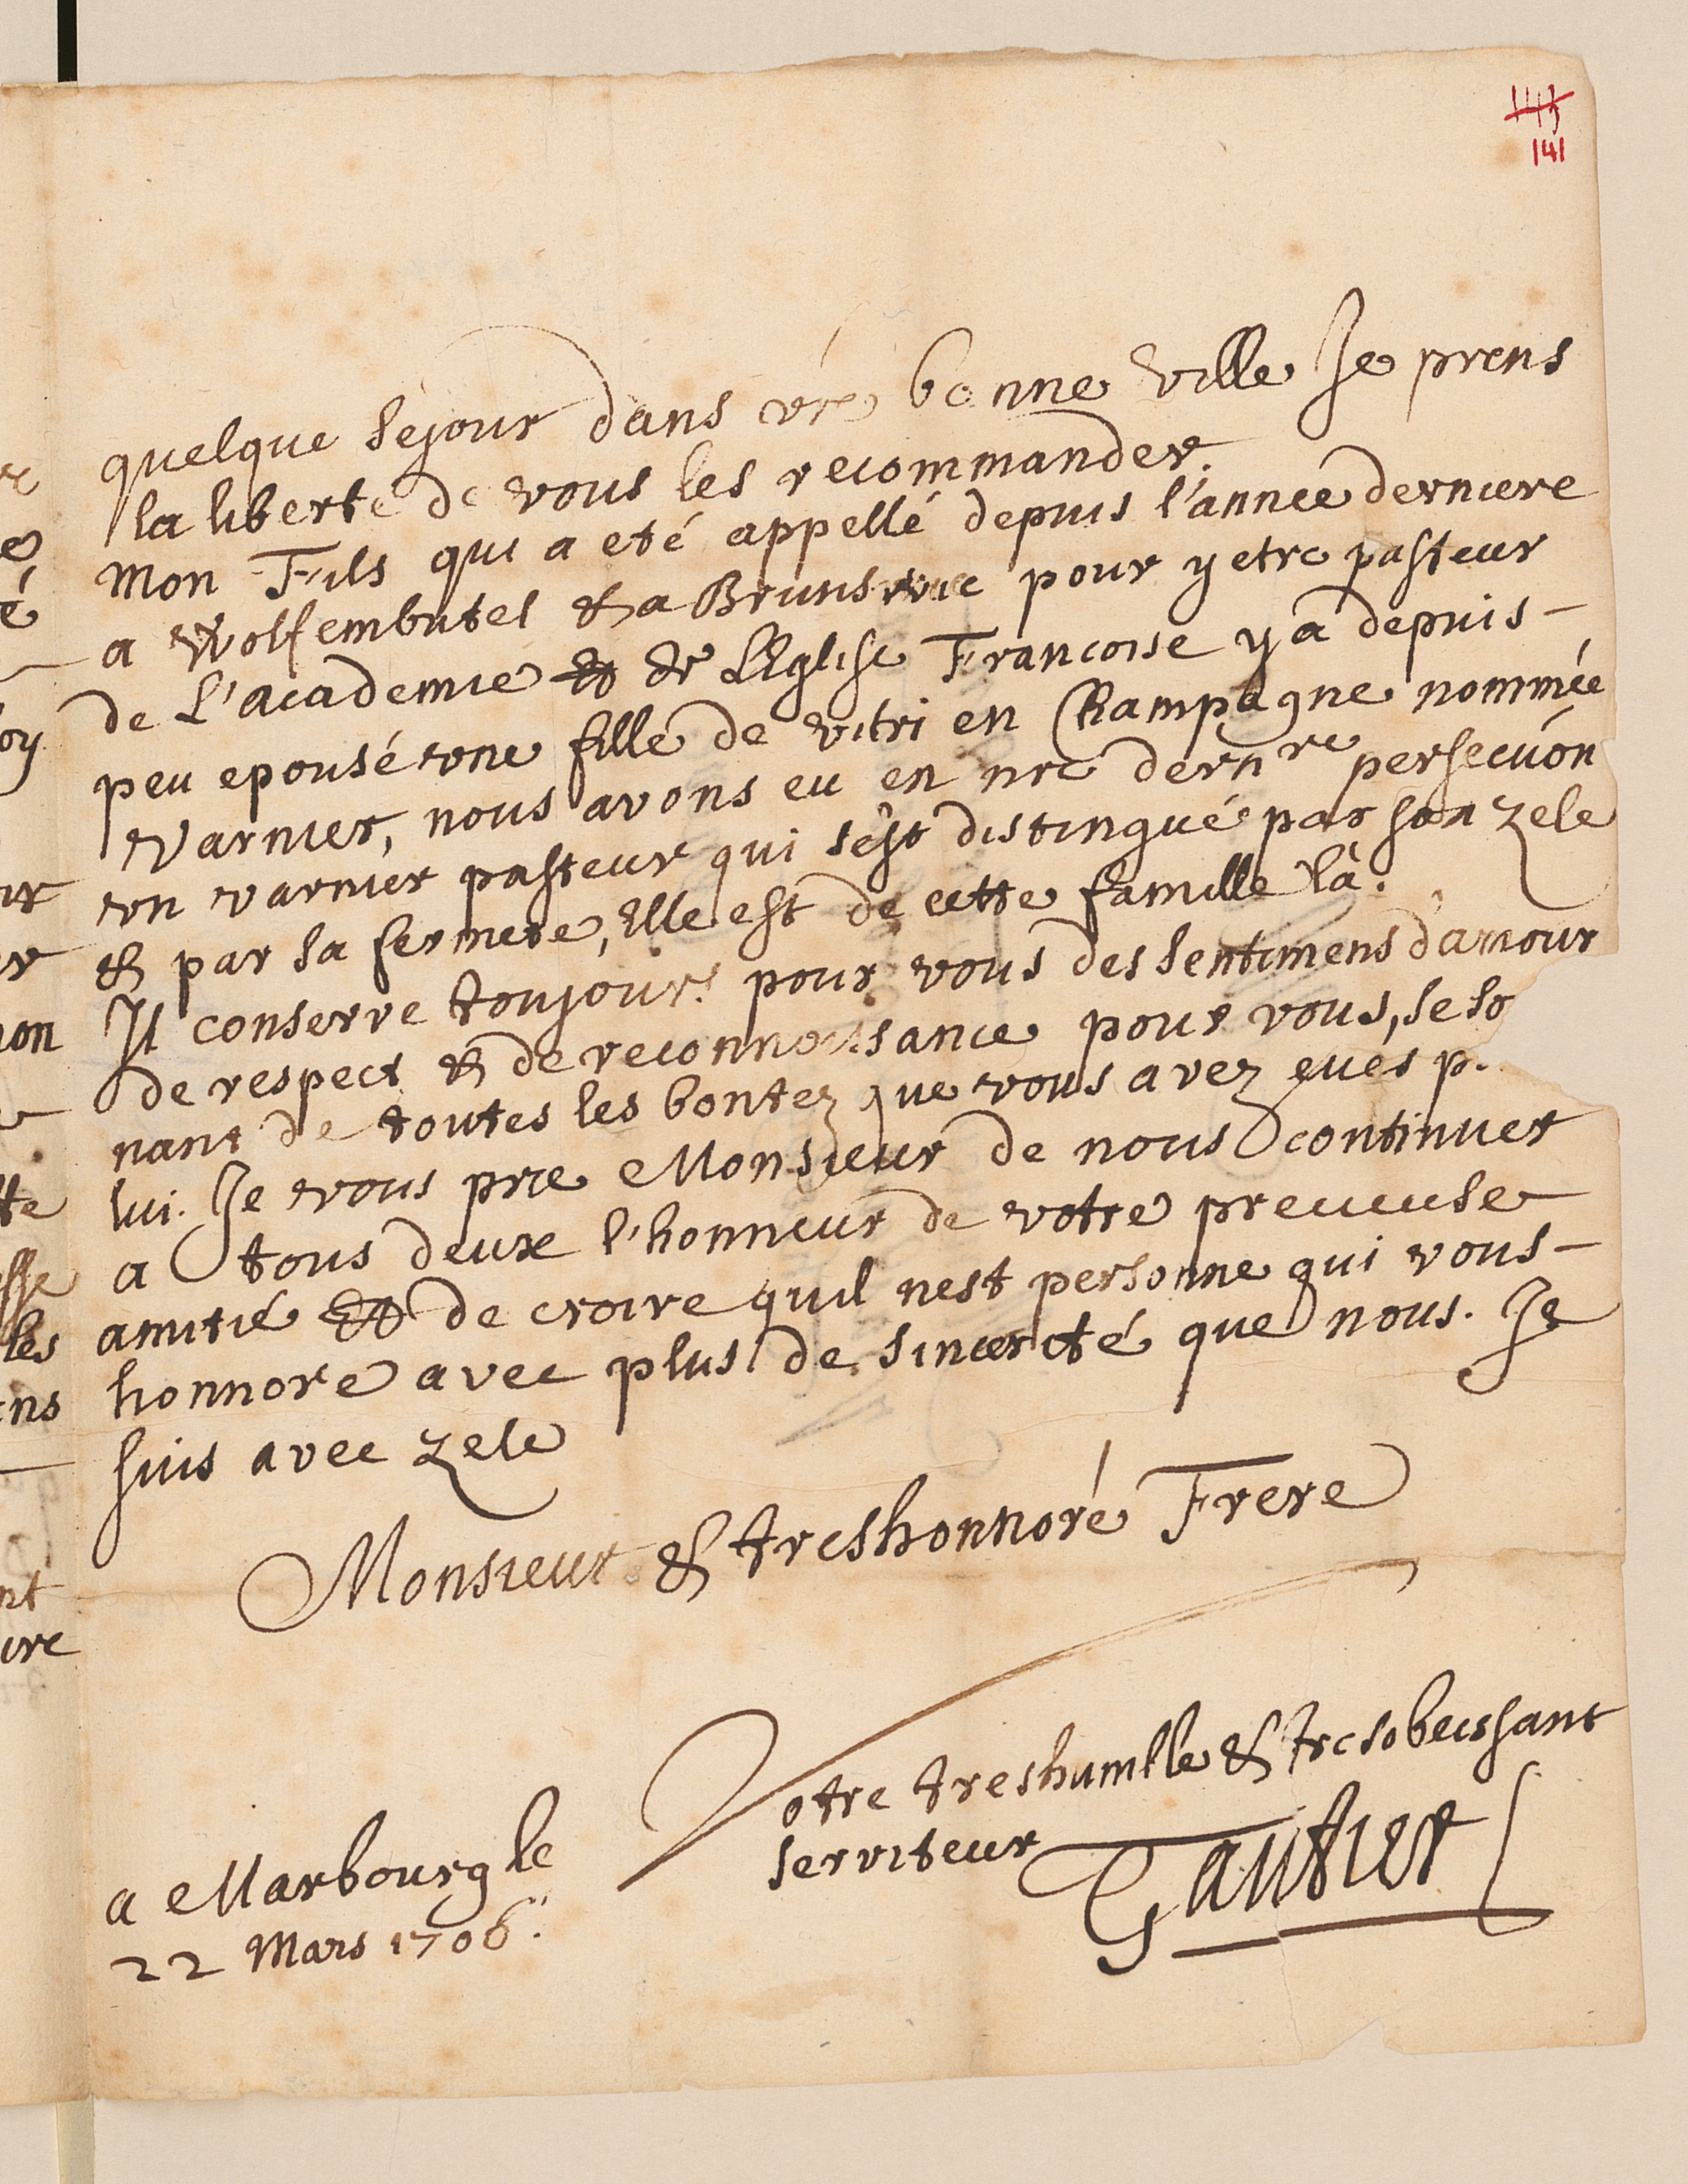 143
141
quelque sejour dans vre bonne ville Je prens
la liberté de vous les recommander.
Mon Fils qui a eté appellé depuis l'année derniere
a Wolfembutel & a Brunswic pour y etre pasteur
de L'academie & de L'Eglise Francoise y a depuis
peu epousé une fille de vitri en Champagne nommée
Varnier, nous avons eu en nre dernre persecuõn
un varnier pasteur qui s'est distingué par son zele
& par sa fermeté, Elle est de cette famille là.
Il conserve toujours pour vous des sentimens d'amour
de respect & de reconnoissance pour vous, se so
nant de toutes les bontez que vous avez eues p.
lui. Je vous prie Monsieur de nous continuer
a tous deux l'honneur de votre precieuse
amitié & de croire quil nest personne qui vous
honnore avec plus de sincerité que nous. Je
suis avec zele
Monsieur & treshonnoré Frere
Votre treshumble & tresobeissant
serviteur Gautier
a Marbourg le
22 Mars 1706.